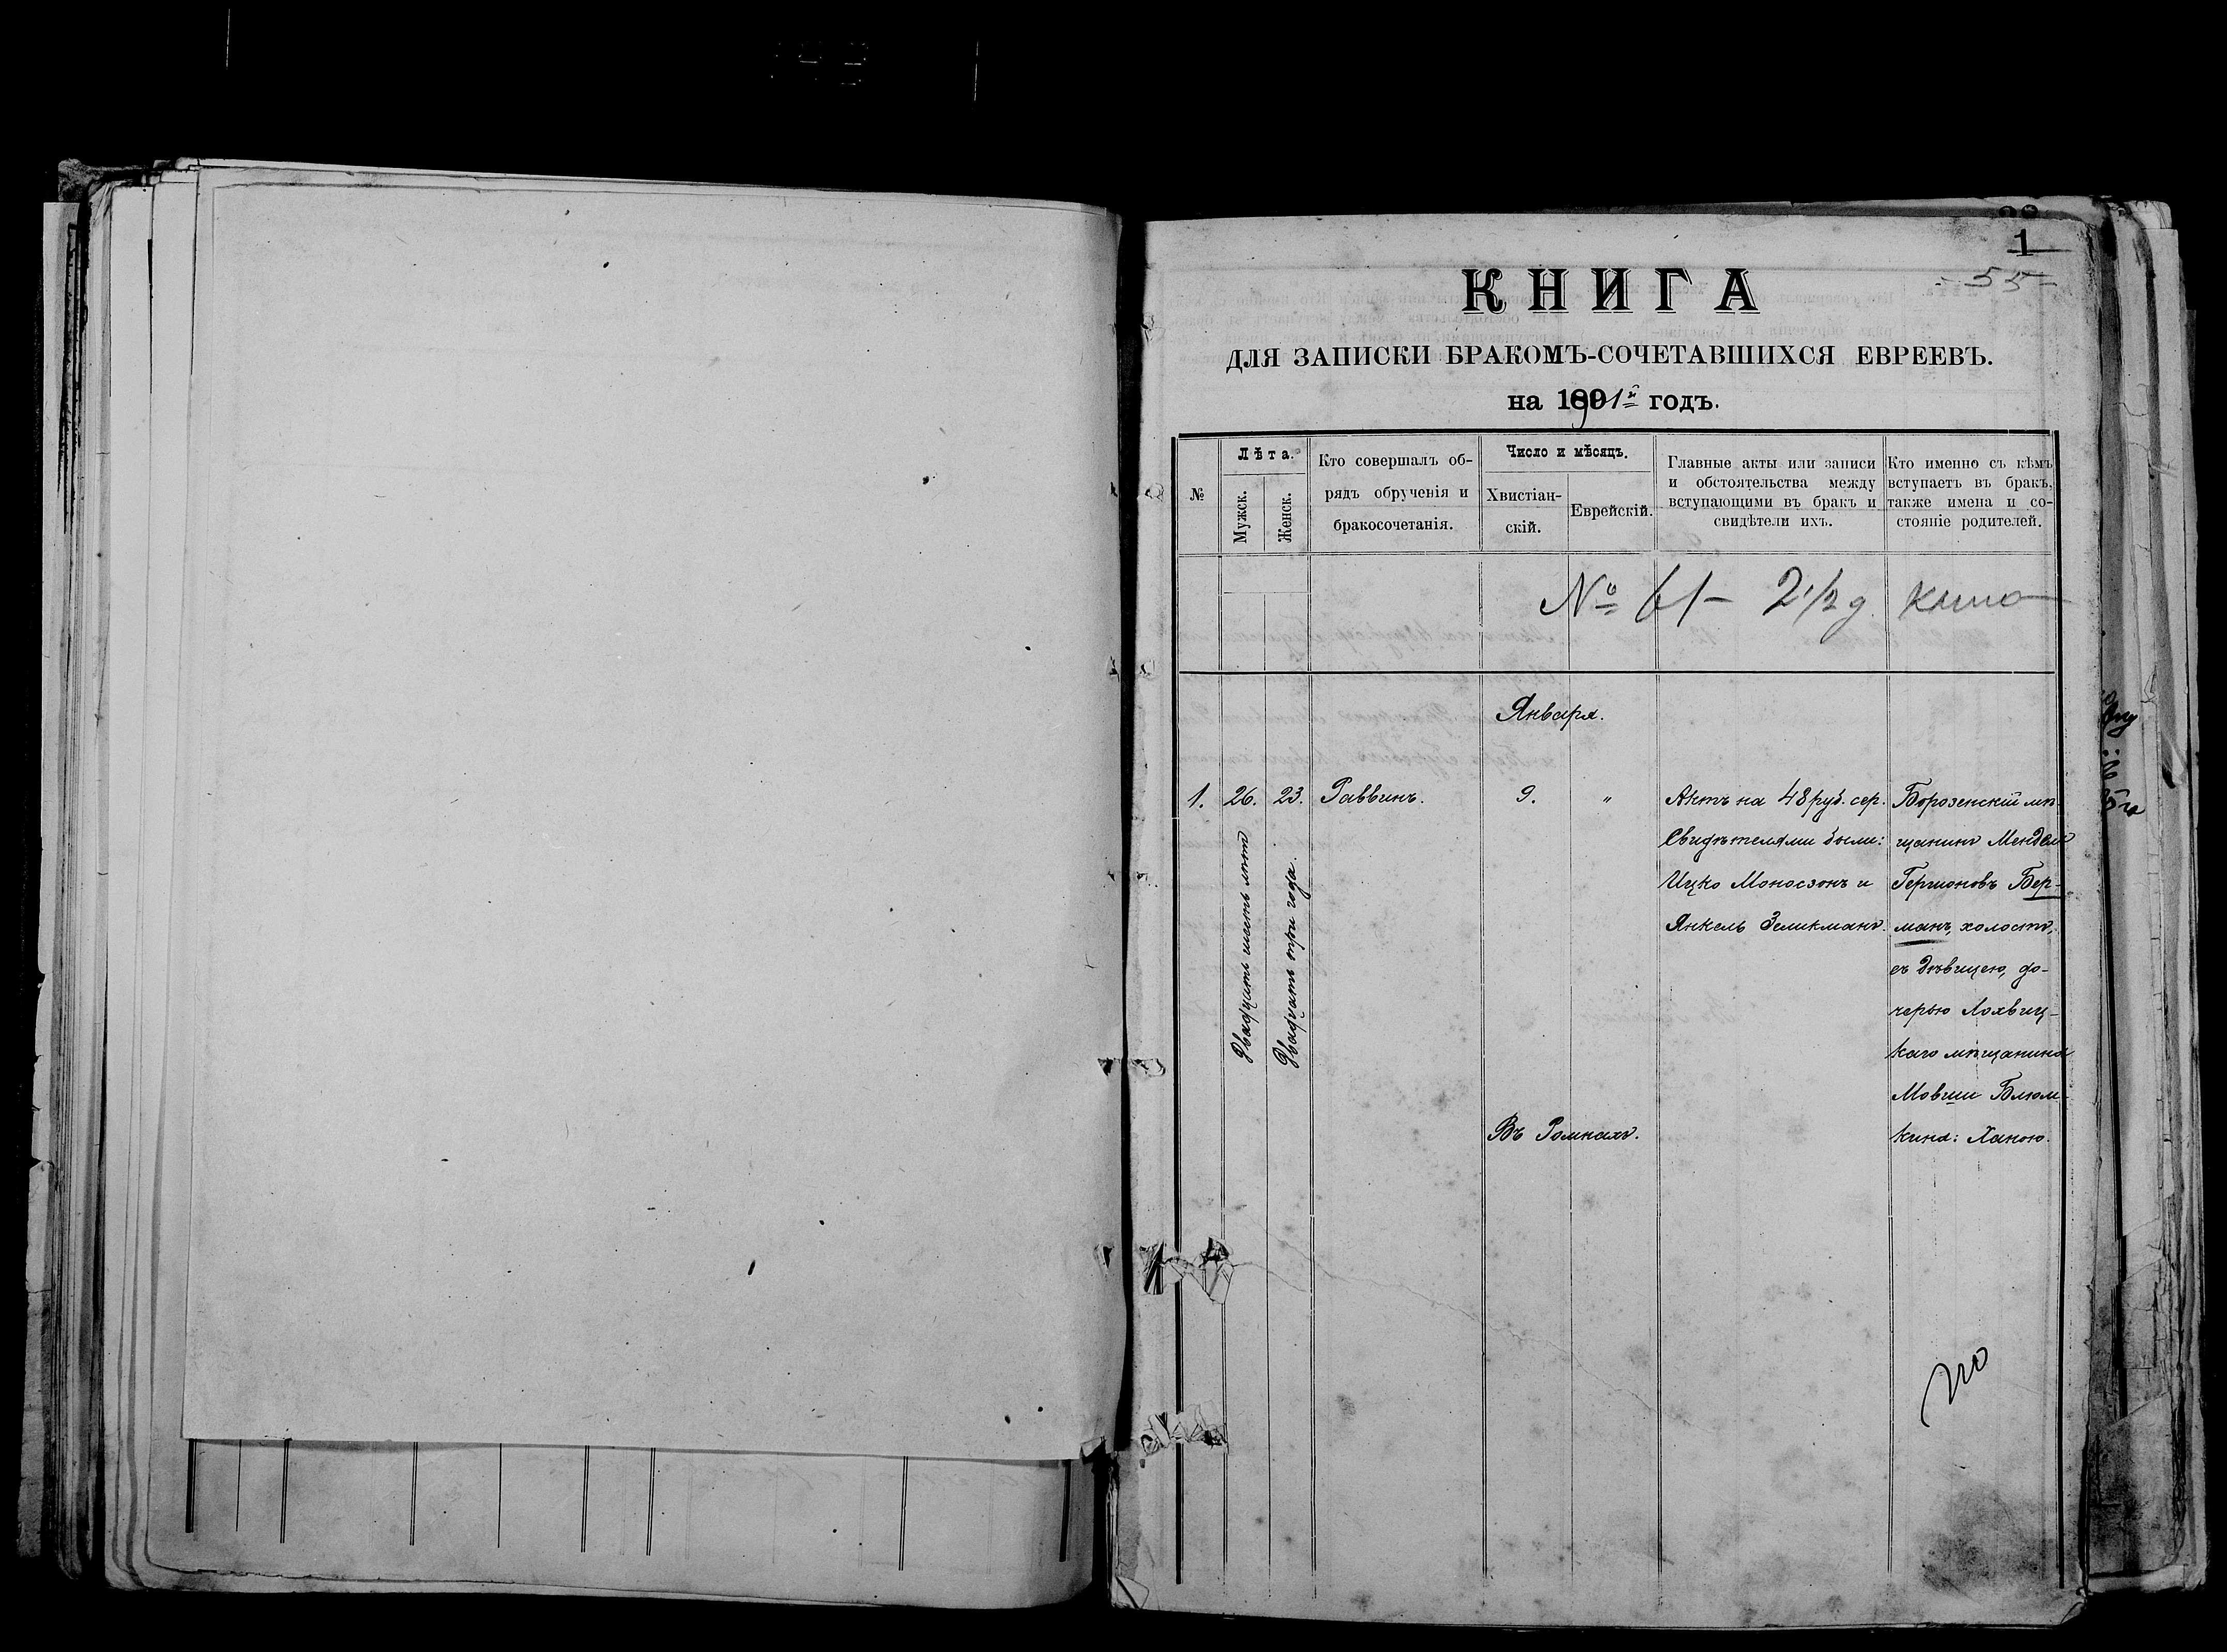 1
- 55 -
КНИГА
ДЛЯ ЗАПИСКИ БРАКОМЪ-СОЧЕТАВШИХСЯ ЕВРЕЕВЪ.
на 1891й годъ.
№
Лѣта.
Мужск.
Женск.
Кто совершалъ об-
рядъ обрученія и
бракосочетанія.
Число и мѣсяцъ.
Хвистіан-
скій.
Еврейскій.
Главные акты или записи
и обстоятельства между
вступающими въ бракъ и
свидѣтели ихъ.
Кто именно съ кѣмъ
вступаетъ въ бракъ,
также имена и со-
стояніе родителей.
№ 61 - 2 1/2 д.
Января.
1.
26.
Двадцать шесть лѣтъ
23.
Двадцать три года.
Раввинъ.
9.
"
Въ Ромнахъ.
Актъ на 48 руб. сер.
Свидѣтелями были:
Ицко Моносзонъ и
Янкель Зеликманъ.
Борозенскій мѣ-
щанинъ Мендель
Гершоновъ Бер-
манъ, холостъ,
съ дѣвицею, до-
черью Лохвиц-
каго мѣщанина
Мовши Блюм-
кина: Ханою.